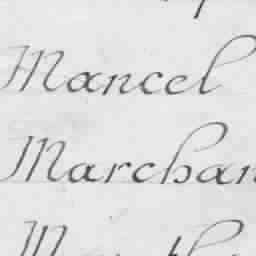 Mancel
Marchan